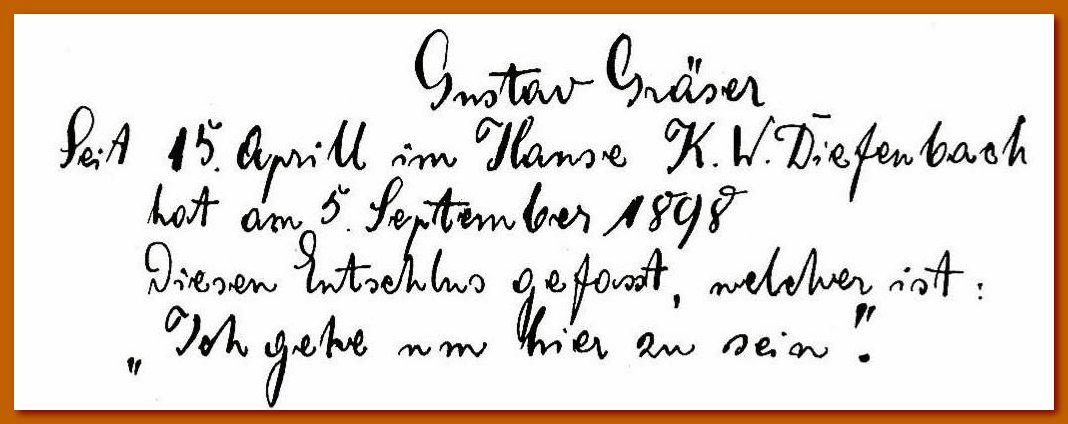 Gustav Gräser
Seit 15. Aprill im Hause K. W. Diefenbach
hat am 5. September 1898
Diesen Entschlus gefasst, welcher ist:
„Ich gehe um hier zu sein".